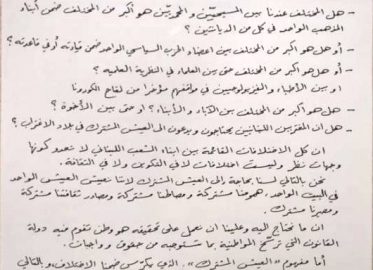 - هل المختلف عندنا بين المسيحيّين والمحمديّين هو أكبر من المختلف ضمن أبناء
المذهب الواحد في كل من الديانتين ؟
- أو هل هو أكبر من المختلف بين اعضاء الحزب السياسي الواحد ضمن قيادته أو في قاعدته ؟
- أو هل هو أكبر من المختلف حتى بين العلماء في النظرية العلمية ؟
او بين الأطباء والفيزيولوجيين في مواقفهم مؤخراً من لقاح الكورونا
- هل هو أكبر من المختلف بين الآباء والأبناء ؟ او حتى بين الأخوة ؟
- هل ان المغتربين اللبنانيين يحتاجون ويدعون الى العيش المشترك في بلاد الاغتراب ؟
ان كل الاختلافات القائمة بين ابناء الشعب اللبناني لا تعدو كونها
وجهات نظر وليست اختلافات لا في التكوين ولا في الثقافة.
نحن بالتالي لسنا بحاجة الى العيش المشترك لاننا نعيش العيش الواحد
في البيت الواحد. همومنا مشتركة ومصالحنا مشتركة ومصادر ثقافتنا مشتركة
ومصيرنا مشترك.
ان ما نحتاج اليه وعلينا ان نعمل على تحقيقه هو وطن تقوم فيه دولة
القانون التي ترسّخ المواطنية بما تستوجبه من حقوق وواجبات.
أما مفهوم "العيش المشترك" الذي يكرّس ضمناً الاختلاف، وبالتالي